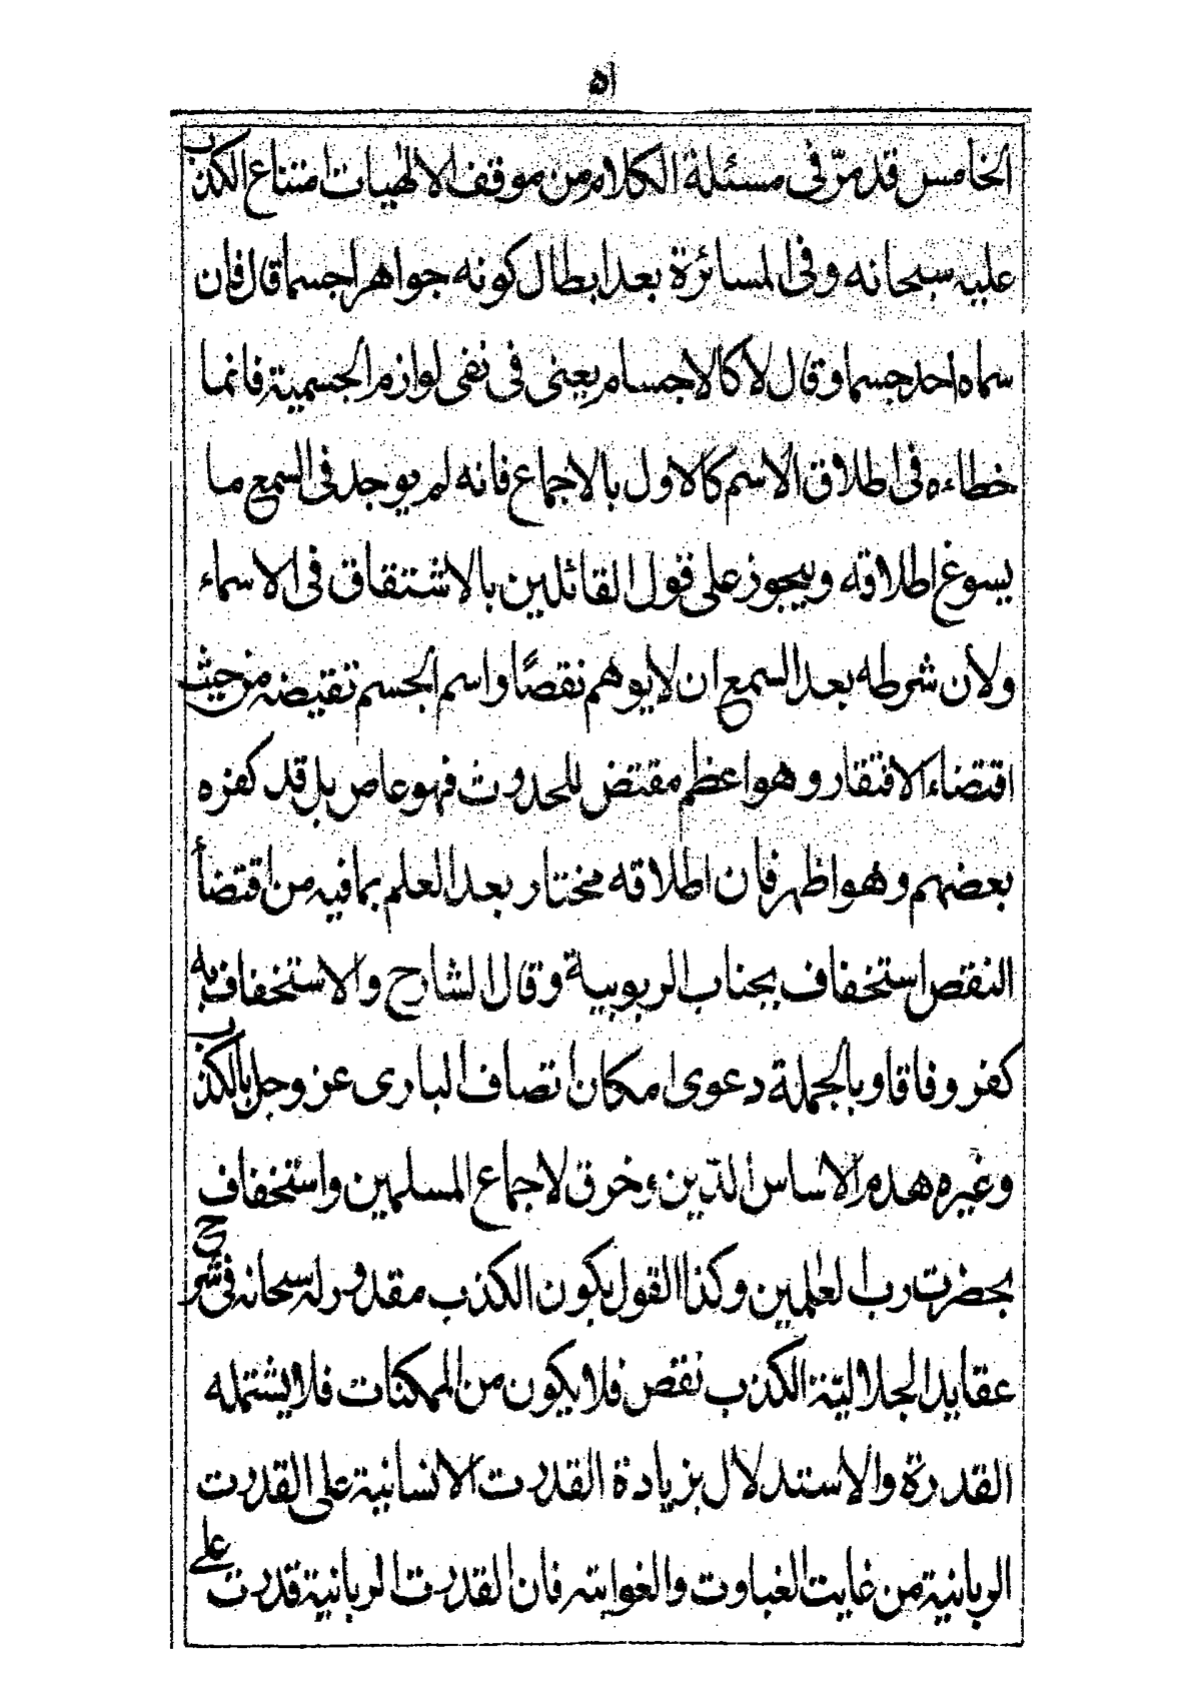 ٥١
الخامس قد مرّ فی مسئلة الکلام من موقف الالٰهیات امتناع الکذب
علیه سبحانه وفی المسائرة بعد ابطال کونه جواهر اجسما قال فان
سماه احد جسما وقال لا کالاجسام یعنی فی نفی لوازم الجسمیة فانما
خطاءه فی اطلاق الاسم کالاول بالاجماع فانه لم یوجد فی السمع ما
یسوغ اطلاقه ویجوز علی قول القائلین بالاشتقاق فی الاسماء
ولان شرطه بعد السمع ان لا یوهم نقصًا واسم الجسم نقیضه من حیث
اقتضاء الافتقار وهو اعظم مقتض للحدوث فهو عاص بل قد کفره
بعضهم وهو اظهر فان اطلاقه مختار بعد العلم بما فیه من اقتضأ
النقص استخفاف بجناب الربوبیة وقال الشارح والاستخفاف به
کفر وفاقا وبالجملة دعوی امکان اتصاف الباری عز وجل بالکذب
وغیره هدم الاساس الدّین وخرق لاجماع المسلمین واستخفاف
بحضرت رب العٰلمین وکذا القول بکون الکذب مقدور له سبحانه فی شرح
عقاید الجلالیّة الکذب نقص فلا یکون من الممکنات فلا یشتمله
القدرة والاستدلال بزیادة القدرت الانسانیة علی القدرت
الربانیة من غایت الغباوت والغوایته فان القدرت الربانیة قدرت علی